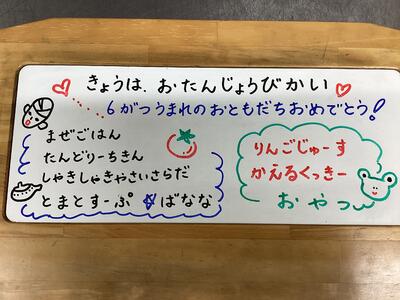 きょうは、おたんじょうびかい
6がつうまれのおともだちおめでとう!
まぜごはん
たんどりーちきん
しゃきしゃきやさいさらだ
とまとすーぷ ☆ばなな
りんごじゅーす
かえるくっきー
おやつ